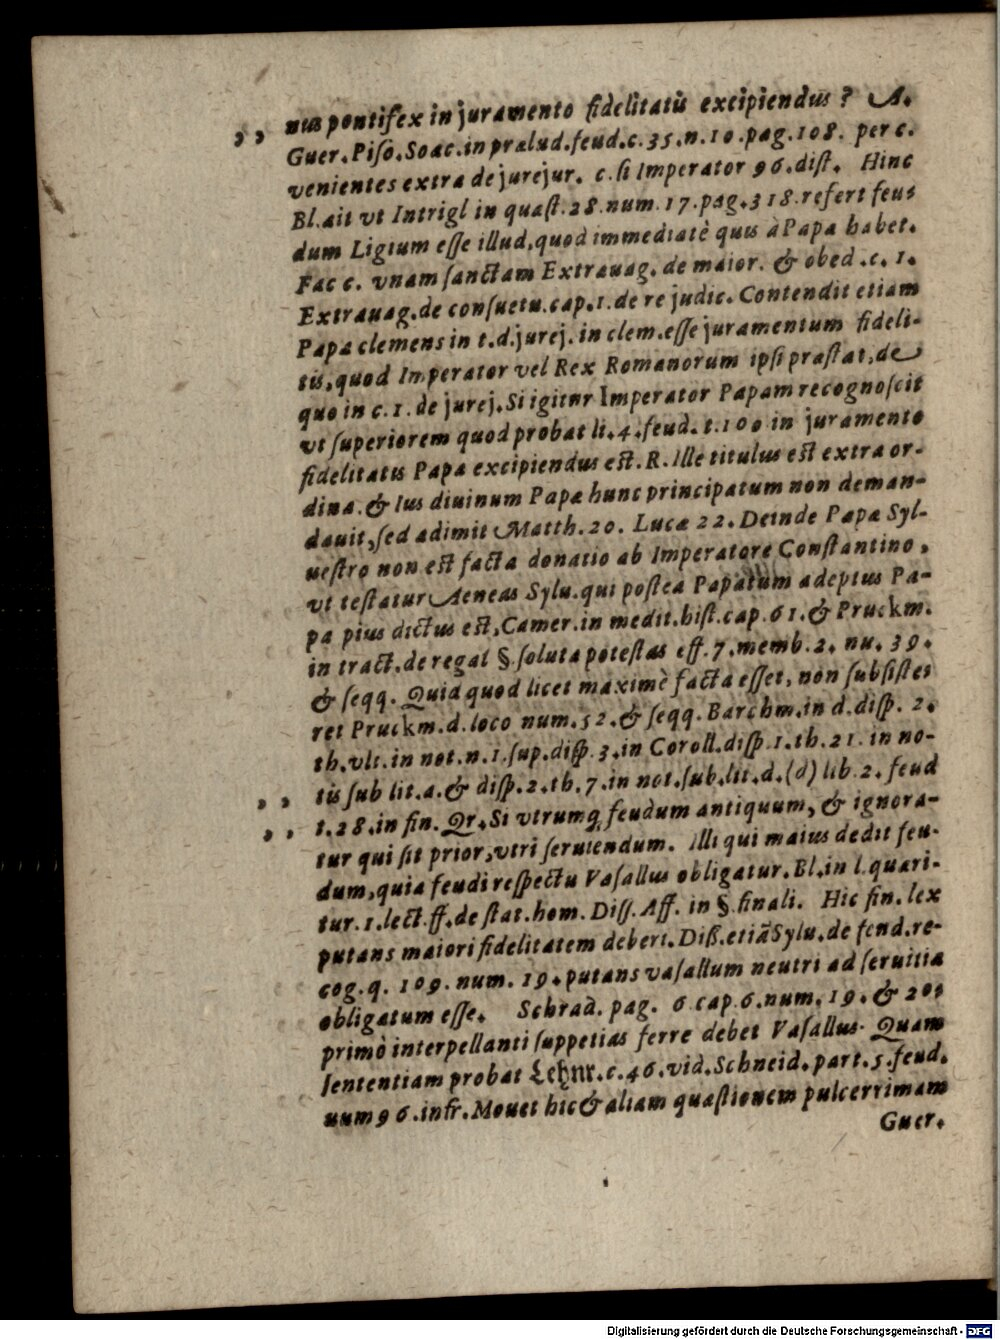 ,, nus pontifex in juramento fidelitatis excipiendus? A.
Guer. Piso. Soac. in prælud. feud. c. 35. n. 10. pag. 108. per c.
venientes extra de jurejur. c. si Imperator 96. dist. Hinc
Bl. ait vt Intrigl in quæst. 28. num. 17. pag. 318. refert feus
dum Ligium esse illud, quod immediatè quis à Papa habet.
Fac c. vnam sanctam Extrauag. de maior. & obed. c. 1.
Extrauag. de consuetu. cap. 1. de re judic. Contendit etiam
Papa clemens in t. d. jurej. in clem. esse juramentum fideli-
tis, quod Imperator vel Rex Romanorum ipsi præstat, de
quo in c. 1. de jurej. Si igitur Imperator Papam recognoscit
vt superiorem quod probat li. 4. feud. t. 100 in juramento
fidelitatis Papa excipiendus est. R. Ille titulus est extra or-
dina. & Ius diuinum Papæ hunc principatum non deman-
dauit, sed adimit Matth. 20. Lucæ 22. Deinde Papæ Syl-
uestro non est facta donatio ab Imperatore Constantino,
vt testatur Aeneas Sylu. qui postea Papatum adeptus Pa-
pa pius dictus est, Camer. in medit. hist. cap. 61. & Pruckm.
in tract. de regal §. soluta potestas eff. 7. memb. 2. nu. 39.
& seqq. Quid quod licet maximè facta esset, non subsistes
ret Pruckm. d. loco num. 52. & seqq. Barchm. in d. disp. 2.
th. vlt. in not. n. 1. sup. disp. 3. in Coroll. disp. 1. th. 21. in no-
tis sub lit. a. & disp. 2. th. 7. in not. sub. lit. d. (d) lib. 2. feud
,, t. 28. in fin. Qr. Si vtrumq; feudum antiquum, & ignora-
,, tur qui sit prior, vtri seruiendum. Illi qui maius dedit feu-
dum, quia feudi respectu Vasallus obligatur. Bl. in l. quæri-
tur. 1. lect. ff. de stat. hom. Diss. Aff. in §. finali. Hic fin. lex
putans maiori fidelitatem deberi. Diß. etiã Sylu. de feud. re-
cog. q. 109. num. 19. putans vasallum neutri ad seruitia
obligatum esse. Schrad. pag. 6 cap. 6. num. 19. & 20s
primò interpellanti suppetias ferre debet Vasallus. Quam
sententiam probat Lehnr. c. 46. vid. Schneid. part. 5. feud.
num 96. infr. Mouet hic & aliam quæstionem pulcerrimam
Guer.
Digitalisierung gefördert durch die Deutsche Forschungsgemeinschaft - DFG